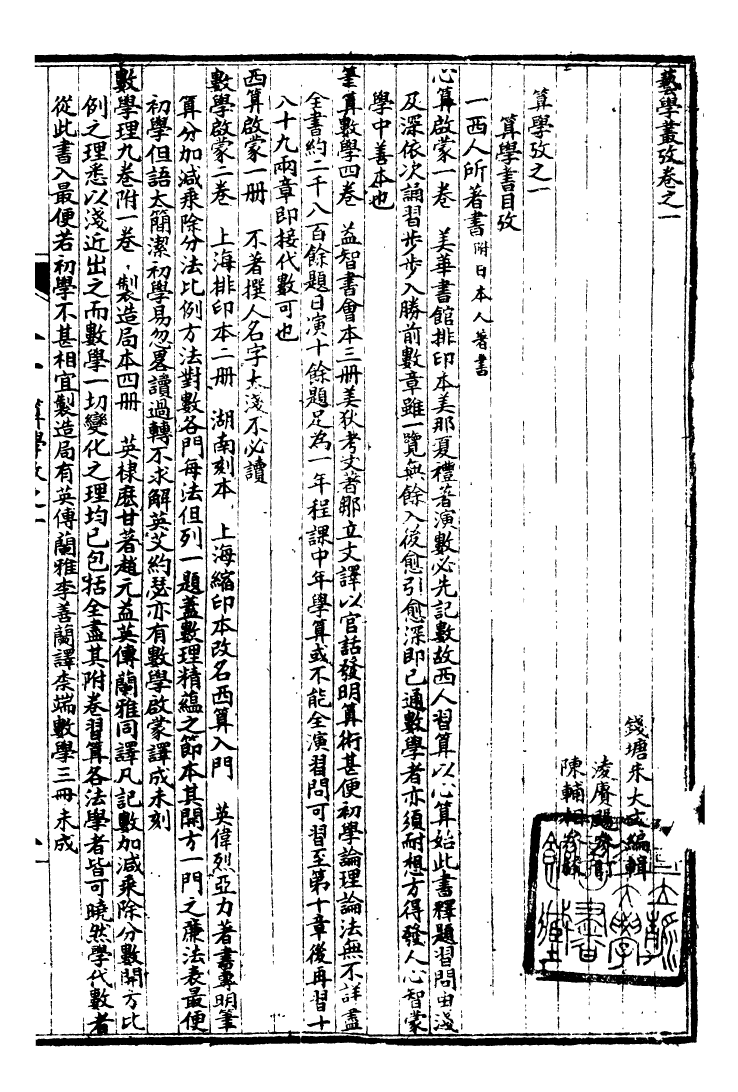 藝學叢攷卷之一
錢塘朱大文編輯
凌賡颺參訂
陳輔相參校
算學攷之一
算學書目攷
一西人所著書附日本人著書
心算啟蒙一卷　美華書館排印本美那夏禮著演數必先記數故西人習算以心算始此書釋題習問由淺
及深依次誦習步步入勝前數章雖一覽無餘入後愈引愈深即已通數學者亦須耐想方得發人心智蒙
學中善本也
筆算數學四卷　益智書會本三册美狄考文著鄒立文譯以官話發明算術甚便初學論理論法無不詳盡
全書約二千八百餘題日演十餘題足為一年程課中年學算或不能全演習問可習至第十章後再習十
八十九兩章即接代數可也
西算啟蒙一册　不著撰人名字太淺不必讀
數學啟蒙二卷　上海排印本二册　湖南刻本　上海縮印本改名西算入門　英偉烈亞力著書專明筆
算分加減乘除分法比例方法對數各門每法但列一題蓋數理精蘊之節本其開方一門之廉法表最便
初學但語太簡潔初學易忽畧讀過轉不求解英艾約瑟亦有數學啟蒙譯成未刻
數學理九卷附一卷　製造局本四册　英棣麽甘著趙元益英傅蘭雅同譯凡記數加減乘除分數開方比
例之理悉以淺近出之而數學一切變化之理均已包括全盡其附卷習算各法學者皆可曉然學代數者
從此書入最便若初學不甚相宜製造局有英傅蘭雅李善蘭譯柰端數學三冊未成
算學攷之一